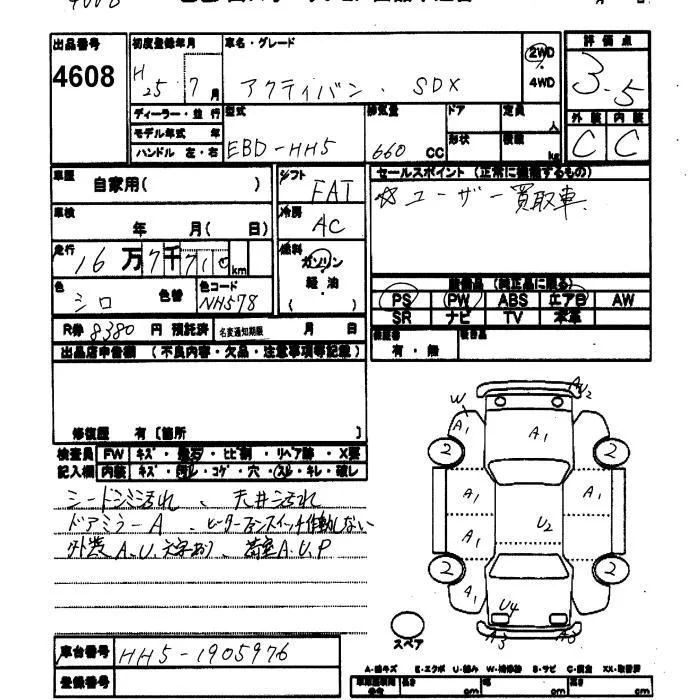 出品番号 4608
初度登録年月 H25 7月
車名・グレード アクティバン SDX
2WD
4WD
評価点 3.5
外装 C 内装 C
ディーラー・並行
モデル年式 年
ハンドル 左・右
型式 EBD-HH5
排気量 660 CC
ドア
形状
定員 人
積載 kg
車歴 自家用( )
シフト FAT
車検 年 月( 日)
冷房 AC
走行 16万7千710km
燃料 ガソリン
軽油
( )
色 シロ 色替
色コード NH578
R券 8380 円 預託済 名変通知期限 月 日
セールスポイント (正常に機能するもの)
☆ユーザー買取車
装備品 (純正品に限る)
PS PW ABS エアB AW
SR ナビ TV 本革
保証書 有・無
出品店申告欄 (不良内容・欠品・注意事項等記載)
修復歴 有 [箇所 ]
検査員 FW キズ・ ・ヒビ割・リペア跡・X要
記入欄 内装 キズ・汚レ・コゲ・穴・スレ・キレ・破レ
シートシミ汚れ、天井汚れ
ドアミラーA、ヒーターファンスイッチ作動しない
外装A、U、文字あり、荷室A、U、P
W A1 A1 AU2
2 2
A1 A1
A1 U2
2 2
A1 U4
A3
スペア
車台番号 HH5-1905976
登録番号
A-線キズ E-エクボ U-凹み W-補修跡 S-サビ C-腐食 XX-取替済
長さ cm 幅 cm 高さ cm